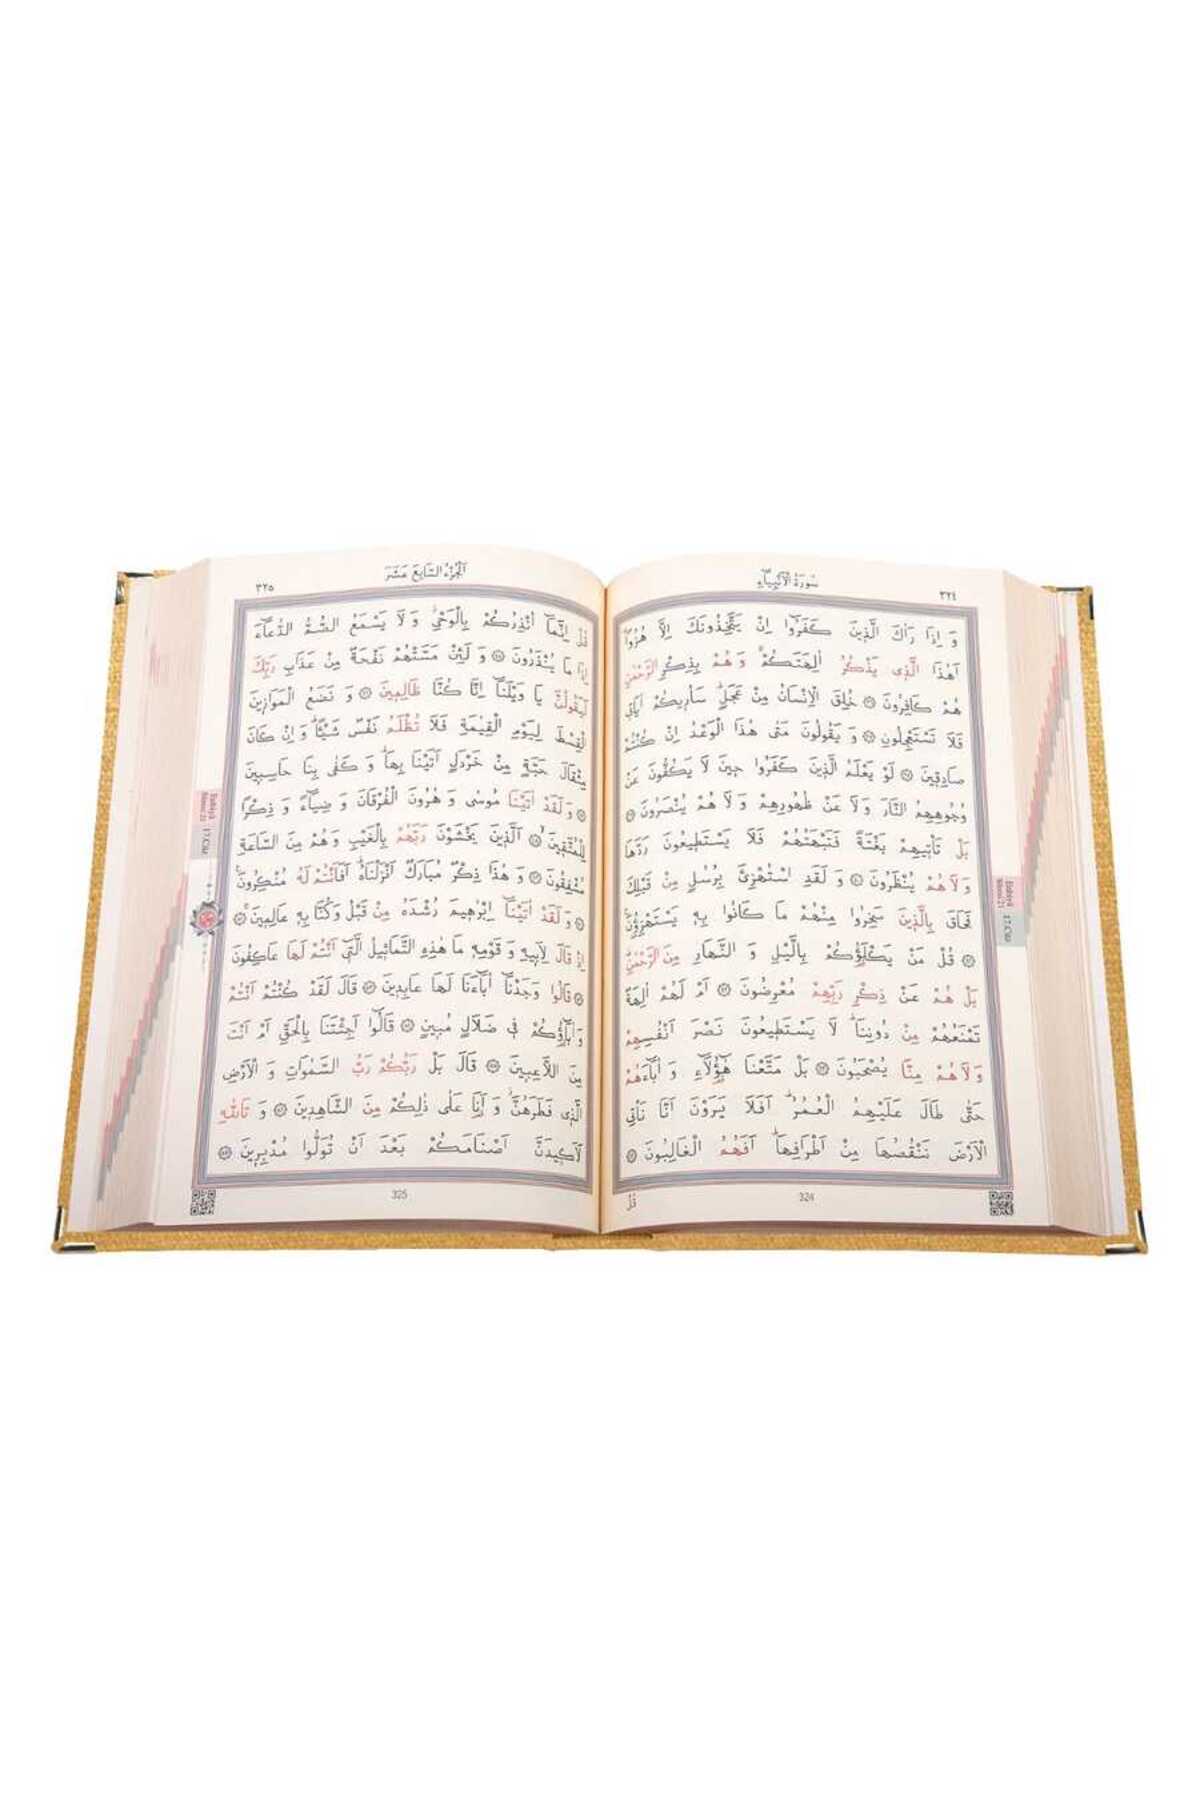 سُورَةُ الْاَنْبِيَاءِ
٣٢٤
وَ اِذَا رَاٰكَ الَّذِينَ كَفَرُٓوا اِنْ يَتَّخِذُونَكَ اِلَّا هُزُوًاۜ
اَهٰذَا الَّذِى يَذْكُرُ اٰلِهَتَكُمْۚ وَ هُمْ بِذِكْرِ الرَّحْمٰنِ
هُمْ كَافِرُونَ ﴿٣٦﴾ خُلِقَ الْاِنْسَانُ مِنْ عَجَلٍۜ سَاُرِيكُمْ اٰيَاتِى
فَلَا تَسْتَعْجِلُونِ ﴿٣٧﴾ وَ يَقُولُونَ مَتٰى هٰذَا الْوَعْدُ اِنْ كُنْتُمْ
صَادِقِينَ ﴿٣٨﴾ لَوْ يَعْلَمُ الَّذِينَ كَفَرُوا حِينَ لَا يَكُفُّونَ عَنْ
وُجُوهِهِمُ النَّارَ وَ لَا عَنْ ظُهُورِهِمْ وَ لَا هُمْ يُنْصَرُونَ ﴿٣٩﴾
بَلْ تَأْتِيهِمْ بَغْتَةً فَتَبْهَتُهُمْ فَلَا يَسْتَطِيعُونَ رَدَّهَا
وَ لَا هُمْ يُنْظَرُونَ ﴿٤٠﴾ وَ لَقَدِ اسْتُهْزِئَ بِرُسُلٍ مِنْ قَبْلِكَ
فَحَاقَ بِالَّذِينَ سَخِرُوا مِنْهُمْ مَا كَانُوا بِهِ يَسْتَهْزِؤُنَ۟
﴿٤١﴾ قُلْ مَنْ يَكْلَؤُكُمْ بِالَّيْلِ وَ النَّهَارِ مِنَ الرَّحْمٰنِۜ
بَلْ هُمْ عَنْ ذِكْرِ رَبِّهِمْ مُعْرِضُونَ ﴿٤٢﴾ اَمْ لَهُمْ اٰلِهَةٌ
تَمْنَعُهُمْ مِنْ دُونِنَاۜ لَا يَسْتَطِيعُونَ نَصْرَ اَنْفُسِهِمْ
وَ لَا هُمْ مِنَّا يُصْحَبُونَ ﴿٤٣﴾ بَلْ مَتَّعْنَا هٰٓؤُلَاءِ وَ اٰبَاءَهُمْ
حَتّٰى طَالَ عَلَيْهِمُ الْعُمُرُۜ اَفَلَا يَرَوْنَ اَنَّا نَأْتِى
الْاَرْضَ نَنْقُصُهَا مِنْ اَطْرَافِهَاۜ اَفَهُمُ الْغَالِبُونَ ﴿٤٤﴾
قُلْ
324
17.Cüz
اَلْجُزْءُ السَّابِعَ عَشَرَ
٣٢٥
قُلْ اِنَّمَٓا اُنْذِرُكُمْ بِالْوَحْىِۘ وَ لَا يَسْمَعُ الصُّمُّ الدُّعَٓاءَ
اِذَا مَا يُنْذَرُونَ ﴿٤٥﴾ وَ لَئِنْ مَسَّتْهُمْ نَفْحَةٌ مِنْ عَذَابِ رَبِّكَ
لَيَقُولُنَّ يَا وَيْلَنَٓا اِنَّا كُنَّا ظَالِمِينَ ﴿٤٦﴾ وَ نَضَعُ الْمَوَازِينَ
الْقِسْطَ لِيَوْمِ الْقِيٰمَةِ فَلَا تُظْلَمُ نَفْسٌ شَيْئًاۜ وَ اِنْ كَانَ
مِثْقَالَ حَبَّةٍ مِنْ خَرْدَلٍ اَتَيْنَا بِهَاۜ وَ كَفٰى بِنَا حَاسِبِينَ
﴿٤٧﴾ وَ لَقَدْ اٰتَيْنَا مُوسٰى وَ هٰرُونَ الْفُرْقَانَ وَ ضِيَٓاءً وَ ذِكْرًا
لِلْمُتَّقِينَۙ ﴿٤٨﴾ اَلَّذِينَ يَخْشَوْنَ رَبَّهُمْ بِالْغَيْبِ وَ هُمْ مِنَ السَّاعَةِ
مُشْفِقُونَ ﴿٤٩﴾ وَ هٰذَا ذِكْرٌ مُبَارَكٌ اَنْزَلْنَاهُۜ اَفَاَنْتُمْ لَهُ مُنْكِرُونَ۟
﴿٥٠﴾ وَ لَقَدْ اٰتَيْنَٓا اِبْرٰهِيمَ رُشْدَهُ مِنْ قَبْلُ وَ كُنَّا بِهِ عَالِمِينَۚ ﴿٥١﴾
اِذْ قَالَ لِاَبِيهِ وَ قَوْمِهِ مَا هٰذِهِ التَّمَاثِيلُ الَّتِٓى اَنْتُمْ لَهَا عَاكِفُونَ
﴿٥٢﴾ قَالُوا وَجَدْنَٓا اٰبَٓاءَنَا لَهَا عَابِدِينَ ﴿٥٣﴾ قَالَ لَقَدْ كُنْتُمْ اَنْتُمْ
وَ اٰبَٓاؤُكُمْ فِى ضَلَالٍ مُبِينٍ ﴿٥٤﴾ قَالُٓوا اَجِئْتَنَا بِالْحَقِّ اَمْ اَنْتَ
مِنَ اللَّاعِبِينَ ﴿٥٥﴾ قَالَ بَلْ رَبُّكُمْ رَبُّ السَّمٰوَاتِ وَ الْاَرْضِ
الَّذِى فَطَرَهُنَّۘ وَ اَنَا عَلٰى ذٰلِكُمْ مِنَ الشَّاهِدِينَ ﴿٥٦﴾ وَ تَاللّٰهِ
لَاَكِيدَنَّ اَصْنَامَكُمْ بَعْدَ اَنْ تُوَلُّوا مُدْبِرِينَ ﴿٥٧﴾
325
17.Cüz